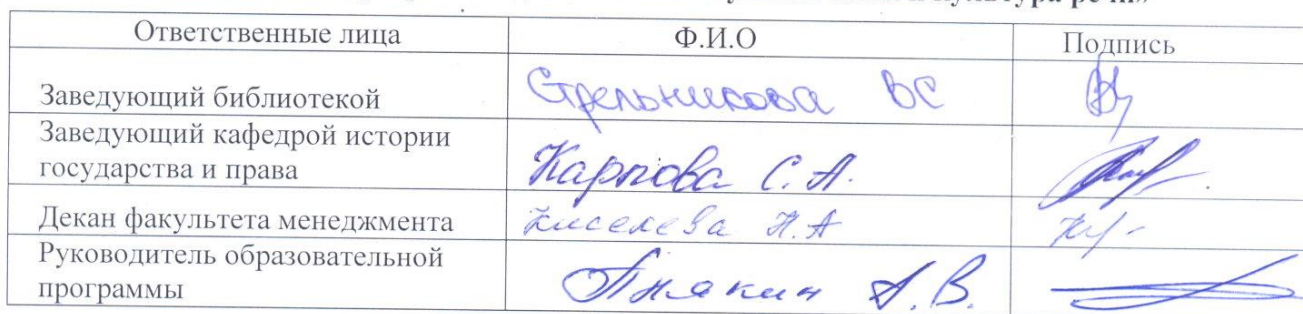 культура речи»
Ответственные лица Ф.И.О Подпись
Заведующий библиотекой Стрельникова ВС
Заведующий кафедрой истории
государства и права Карпова С.А.
Декан факультета менеджмента Киселева Н.А
Руководитель образовательной
программы А.В.